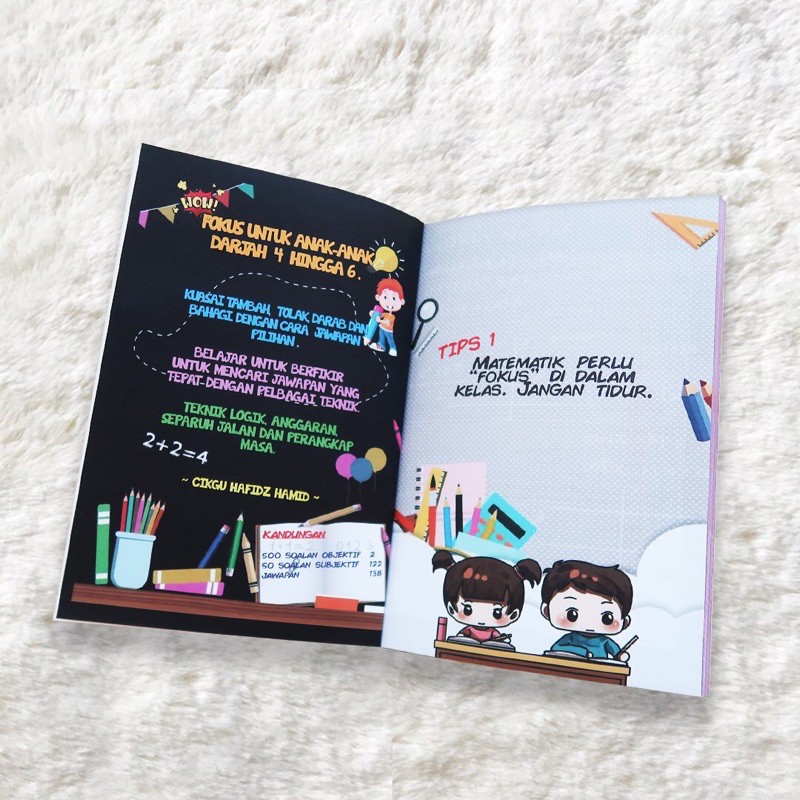 WOW!
FOKUS UNTUK ANAK-ANAK
DARJAH 4 HINGGA 6.
KUASAI TAMBAH, TOLAK DARAB DAN
BAHAGI DENGAN CARA JAWAPAN
PILIHAN.
BELAJAR UNTUK BERFIKIR
UNTUK MENCARI JAWAPAN YANG
TEPAT-DENGAN PELBAGAI TEKNIK.
TEKNIK LOGIK, ANGGARAN,
SEPARUH JALAN DAN PERANGKAP
MASA.
2+2=4
~ CIKGU HAFIDZ HAMID ~
KANDUNGAN
500 SOALAN OBJEKTIF 2
50 SOALAN SUBJEKTIF 122
JAWAPAN 138
TIPS 1
MATEMATIK PERLU
"FOKUS" DI DALAM
KELAS. JANGAN TIDUR.